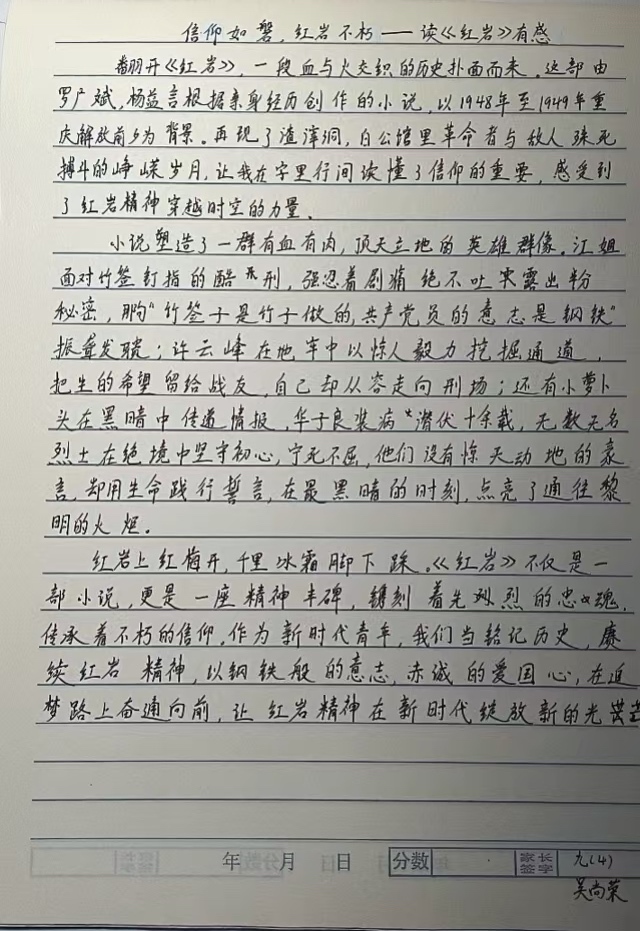 信仰如磐,红岩不朽——读《红岩》有感
翻开《红岩》,一段血与火交织的历史扑面而来。这部由
罗广斌,杨益言根据亲身经历创作的小说,以1948年至1949年重
庆解放前夕为背景。再现了渣滓洞,白公馆里革命者与敌人殊死
搏斗的峥嵘岁月,让我在字里行间读懂了信仰的重要,感受到
了红岩精神穿越时空的力量。
小说塑造了一群有血有肉,顶天立地的英雄群像。江姐
面对竹签钉指的酷刑,强忍着剧痛绝不吐露出半分
秘密,那句“竹签子是竹子做的,共产党员的意志是钢铁”
振聋发聩;许云峰在地牢中以惊人毅力挖掘通道,
把生的希望留给战友,自己却从容走向刑场;还有小萝卜
头在黑暗中传递情报,华子良装病潜伏十余载,无数无名
烈士在绝境中坚守初心,宁死不屈,他们没有惊天动地的豪
言,却用生命践行誓言,在最黑暗的时刻,点亮了通往黎
明的火炬。
红岩上红梅开,千里冰霜脚下踩。《红岩》不仅是一
部小说,更是一座精神丰碑,镌刻着先烈的忠魂,
传承着不朽的信仰。作为新时代青年,我们当铭记历史,赓
续红岩精神,以钢铁般的意志,赤诚的爱国心,在追
梦路上奋勇向前,让红岩精神在新时代绽放新的光芒
年 月 日 分数 家长签字 九(4)
吴尚荣